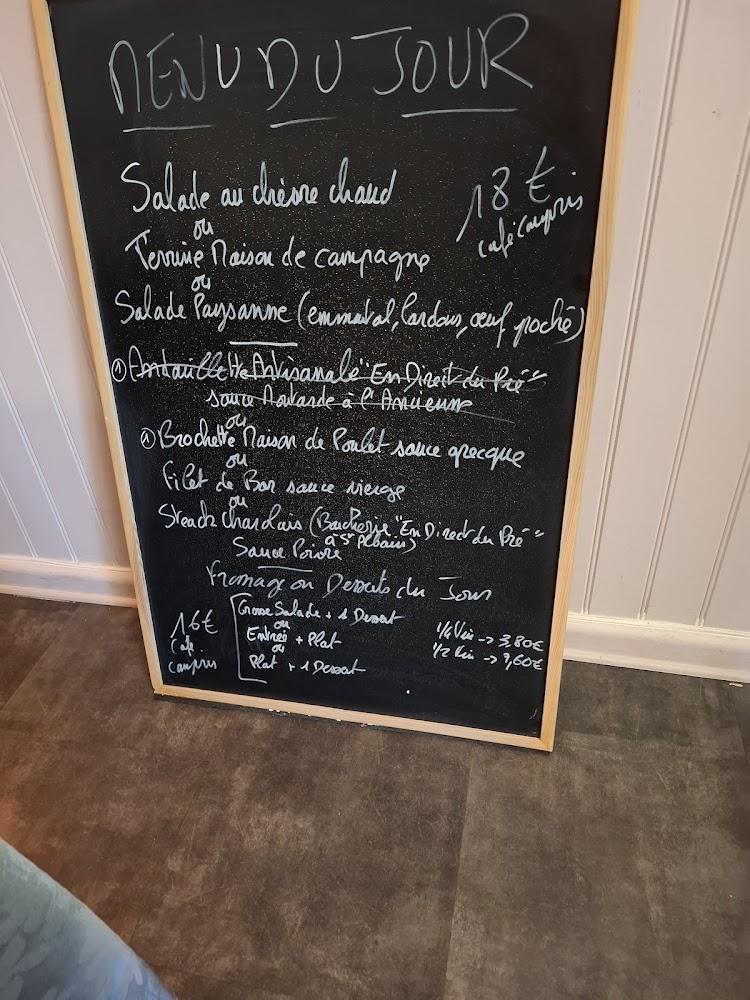 MENU DU JOUR
Salade au chèvre chaud
18 €
café compris
ou
Terrine Maison de campagne
ou
Salade Paysanne (emmental, lardons, œuf poché)
① Andouillette Artisanale "En Direct du Pré"
sauce Moutarde à l'Ancienne
ou
① Brochette Maison de Poulet sauce grecque
ou
Filet de Bar sauce vierge
ou
Steack charolais (Boucherie "En Direct du Pré"
à St Albain)
Sauce Poivre
Fromage ou Desserts du Jour
16 €
Café
compris
Grosse Salade + 1 Dessert
ou
Entrée + Plat
ou
Plat + 1 Dessert
1/4 Vin -> 3,80€
1/2 Vin -> 7,60€